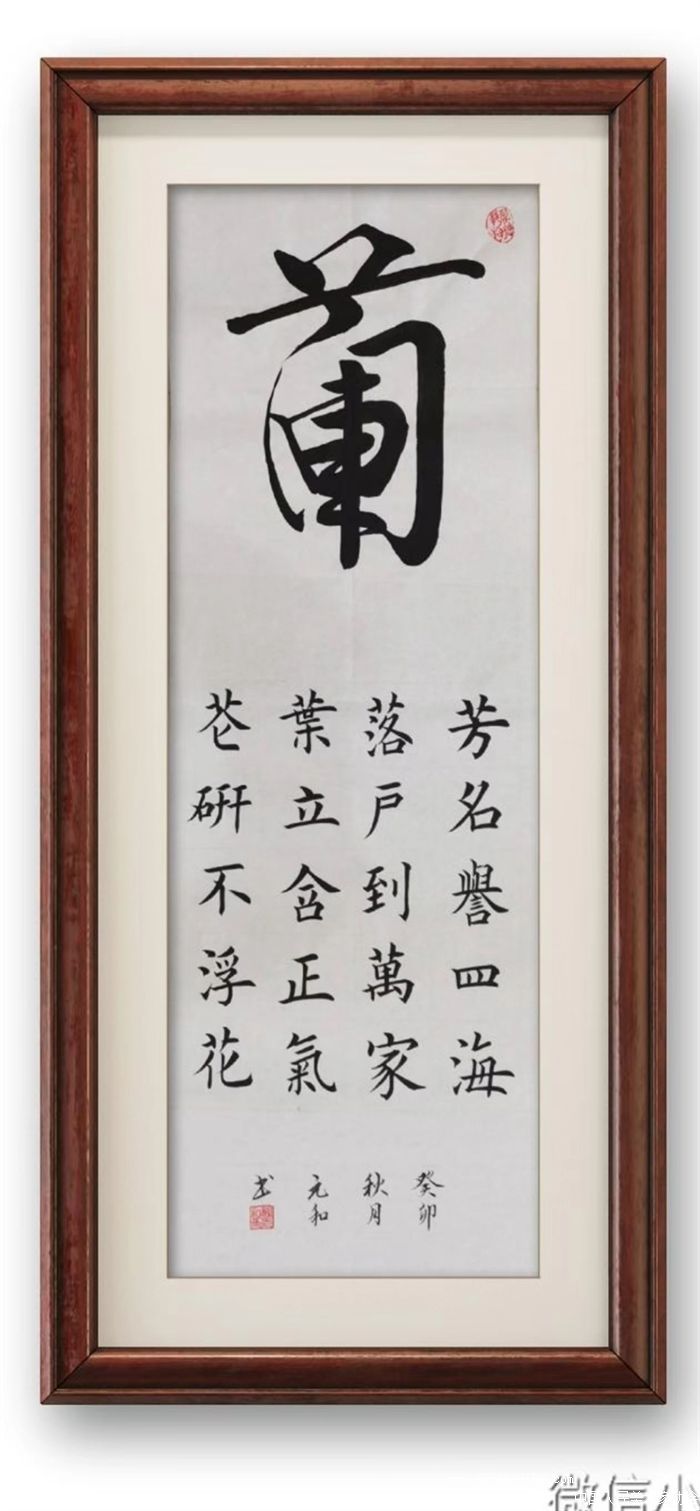 蘭
芳名譽四海
落戶到萬家
葉立含正氣
芲硏不浮花
癸卯
秋月
元和
书
微信小